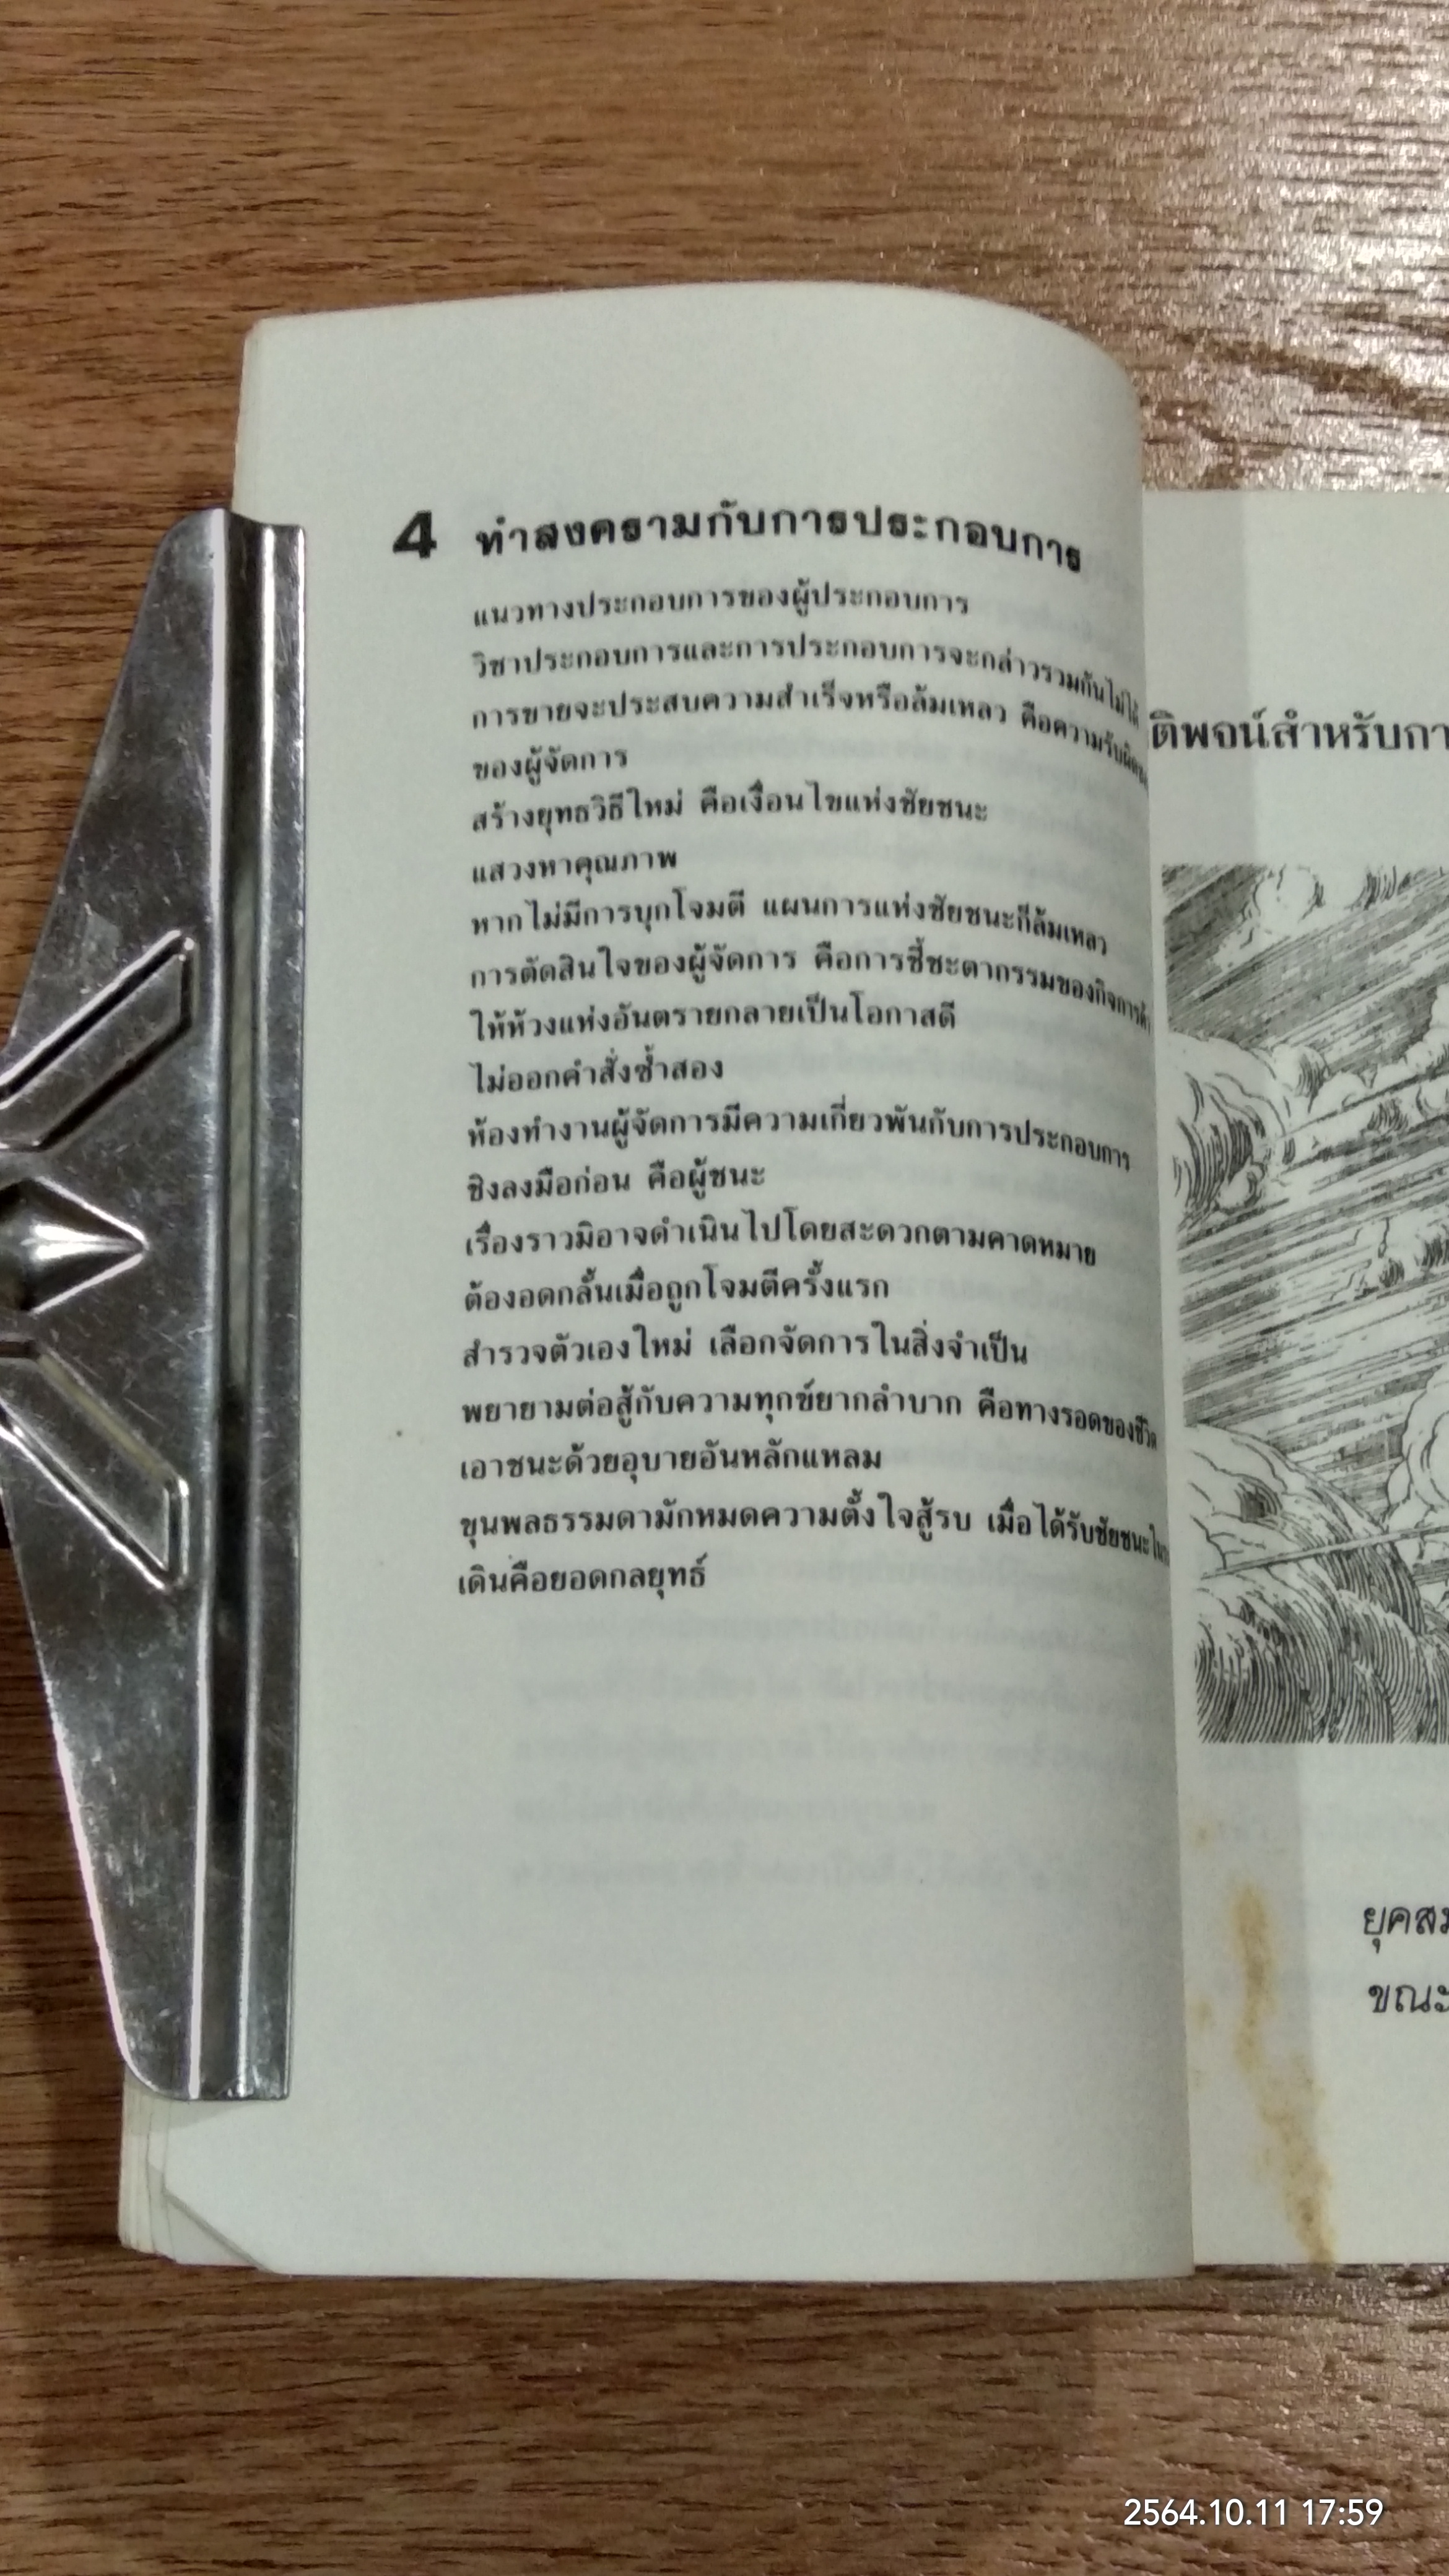 4 ทำสงครามกับการประกอบการ
แนวทางประกอบการของผู้ประกอบการ
วิชาประกอบการและการประกอบการจะกล่าวรวมกันไม่ได้
การขายจะประสบความสำเร็จหรือล้มเหลว คือความรับผิดชอบ
ของผู้จัดการ
สร้างยุทธวิธีใหม่ คือเงื่อนไขแห่งชัยชนะ
แสวงหาคุณภาพ
หากไม่มีการบุกโจมตี แผนการแห่งชัยชนะก็ล้มเหลว
การตัดสินใจของผู้จัดการ คือการชี้ชะตากรรมของกิจการค้า
ให้ห้วงแห่งอันตรายกลายเป็นโอกาสดี
ไม่ออกคำสั่งซ้ำสอง
ห้องทำงานผู้จัดการมีความเกี่ยวพันกับการประกอบการ
ชิงลงมือก่อน คือผู้ชนะ
เรื่องราวมิอาจดำเนินไปโดยสะดวกตามคาดหมาย
ต้องอดกลั้นเมื่อถูกโจมตีครั้งแรก
สำรวจตัวเองใหม่ เลือกจัดการในสิ่งจำเป็น
พยายามต่อสู้กับความทุกข์ยากลำบาก คือทางรอดของชีวิต
เอาชนะด้วยอุบายอันหลักแหลม
ขุนพลธรรมดามักหมดความตั้งใจสู้รบ เมื่อได้รับชัยชนะ
เดินคือยอดกลยุทธ์
ติพจน์สำหรับกา
ยุคสม
ขณะ
2564.10.11 17:59